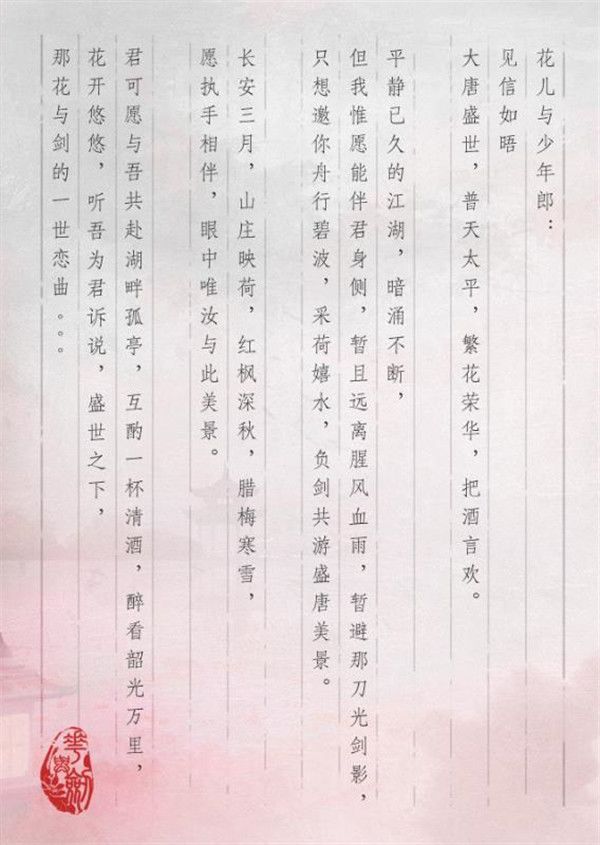 花儿与少年郎：
见信如晤
大唐盛世，普天太平，繁花荣华，把酒言欢。
平静已久的江湖，暗涌不断，
但我惟愿能伴君身侧，暂且远离腥风血雨，暂避那刀光剑影，
只想邀你舟行碧波，采荷嬉水，负剑共游盛唐美景。
长安三月，山庄映荷，红枫深秋，腊梅寒雪，
愿执手相伴，眼中唯汝与此美景。
君可愿与吾共赴湖畔孤亭，互酌一杯清酒，醉看韶光万里，
花开悠悠，听吾为君诉说，盛世之下，
那花与剑的一世恋曲。。。
華與劍